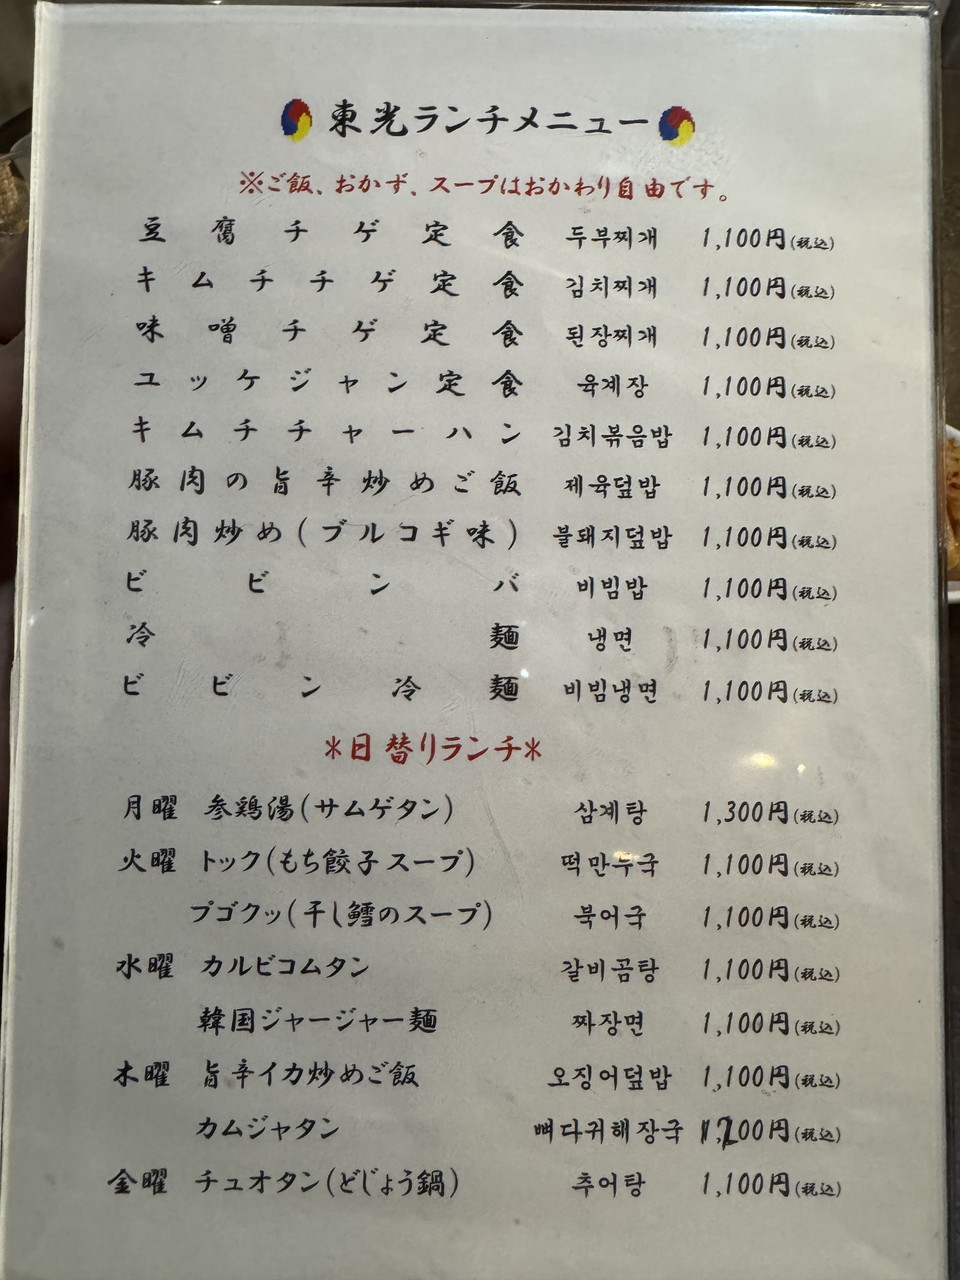 東光ランチメニュー
※ご飯、おかず、スープはおかわり自由です。
豆腐チゲ定食 두부찌개 1,100円(税込)
キムチチゲ定食 김치찌개 1,100円(税込)
味噌チゲ定食 된장찌개 1,100円(税込)
ユッケジャン定食 육계장 1,100円(税込)
キムチチャーハン 김치볶음밥 1,100円(税込)
豚肉の旨辛炒めご飯 제육덮밥 1,100円(税込)
豚肉炒め(ブルコギ味) 불돼지덮밥 1,100円(税込)
ビビンバ 비빔밥 1,100円(税込)
冷麺 냉면 1,100円(税込)
ビビン冷麺 비빔냉면 1,100円(税込)
*日替りランチ*
月曜 参鶏湯(サムゲタン) 삼계탕 1,300円(税込)
火曜 トック(もち餃子スープ) 떡만두국 1,100円(税込)
プゴクッ(干し鱈のスープ) 북어국 1,100円(税込)
水曜 カルビコムタン 갈비곰탕 1,100円(税込)
韓国ジャージャー麺 짜장면 1,100円(税込)
木曜 旨辛イカ炒めご飯 오징어덮밥 1,100円(税込)
カムジャタン 뼈다귀해장국 1,200円(税込)
金曜 チュオタン(どじょう鍋) 추어탕 1,100円(税込)